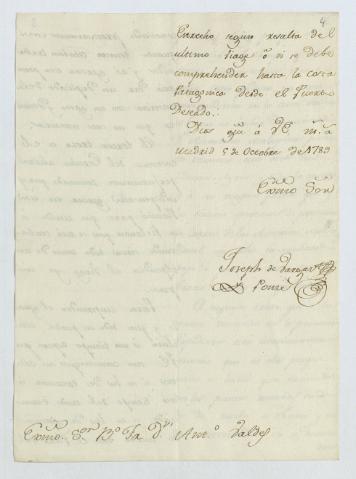 4
Estrecho segun resulta del
ultimo viage ô si se debe
comprehender hasta la costa
Patagonica desde el Puerto
Deseado.
Dios gue â VE. ms. as.
Madrid 5 de Octubre de 1789
Exmo Sor
Joseph de Vargas y
Ponce
Exmo. Sor. Bo. Fr. Dn. Anto. Valdes